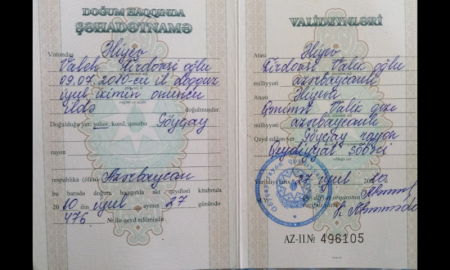 DOĞUM HAQQINDA
ŞƏHADƏTNAMƏ
Vətəndaş Əliyev
Valeh Firdovsi oğlu
09.07.2010-cu il doqquz
iyul iki min onuncu
ildə doğulmuşdur.
Doğulduğu yer: şəhər, kənd, qəsəbə Göyçay
rayon
respublika (ölkə) Azərbaycan
bu barədə doğum haqqında akt qeydləri kitabında
20 10 ilin iyul ayının 27 günündə
476 № ilə qeyd edilmişdir
VALİDEYNLƏRİ
Atası Əliyev
Firdovsi Valeh oğlu
milliyyəti azərbaycanlı
Anası Əliyeva
qızı
milliyyəti azərbaycanlı
Qeyd edilən yer Göyçay rayon
Qeydiyyat şöbəsi
27 iyul 20
AZ-II № 496105